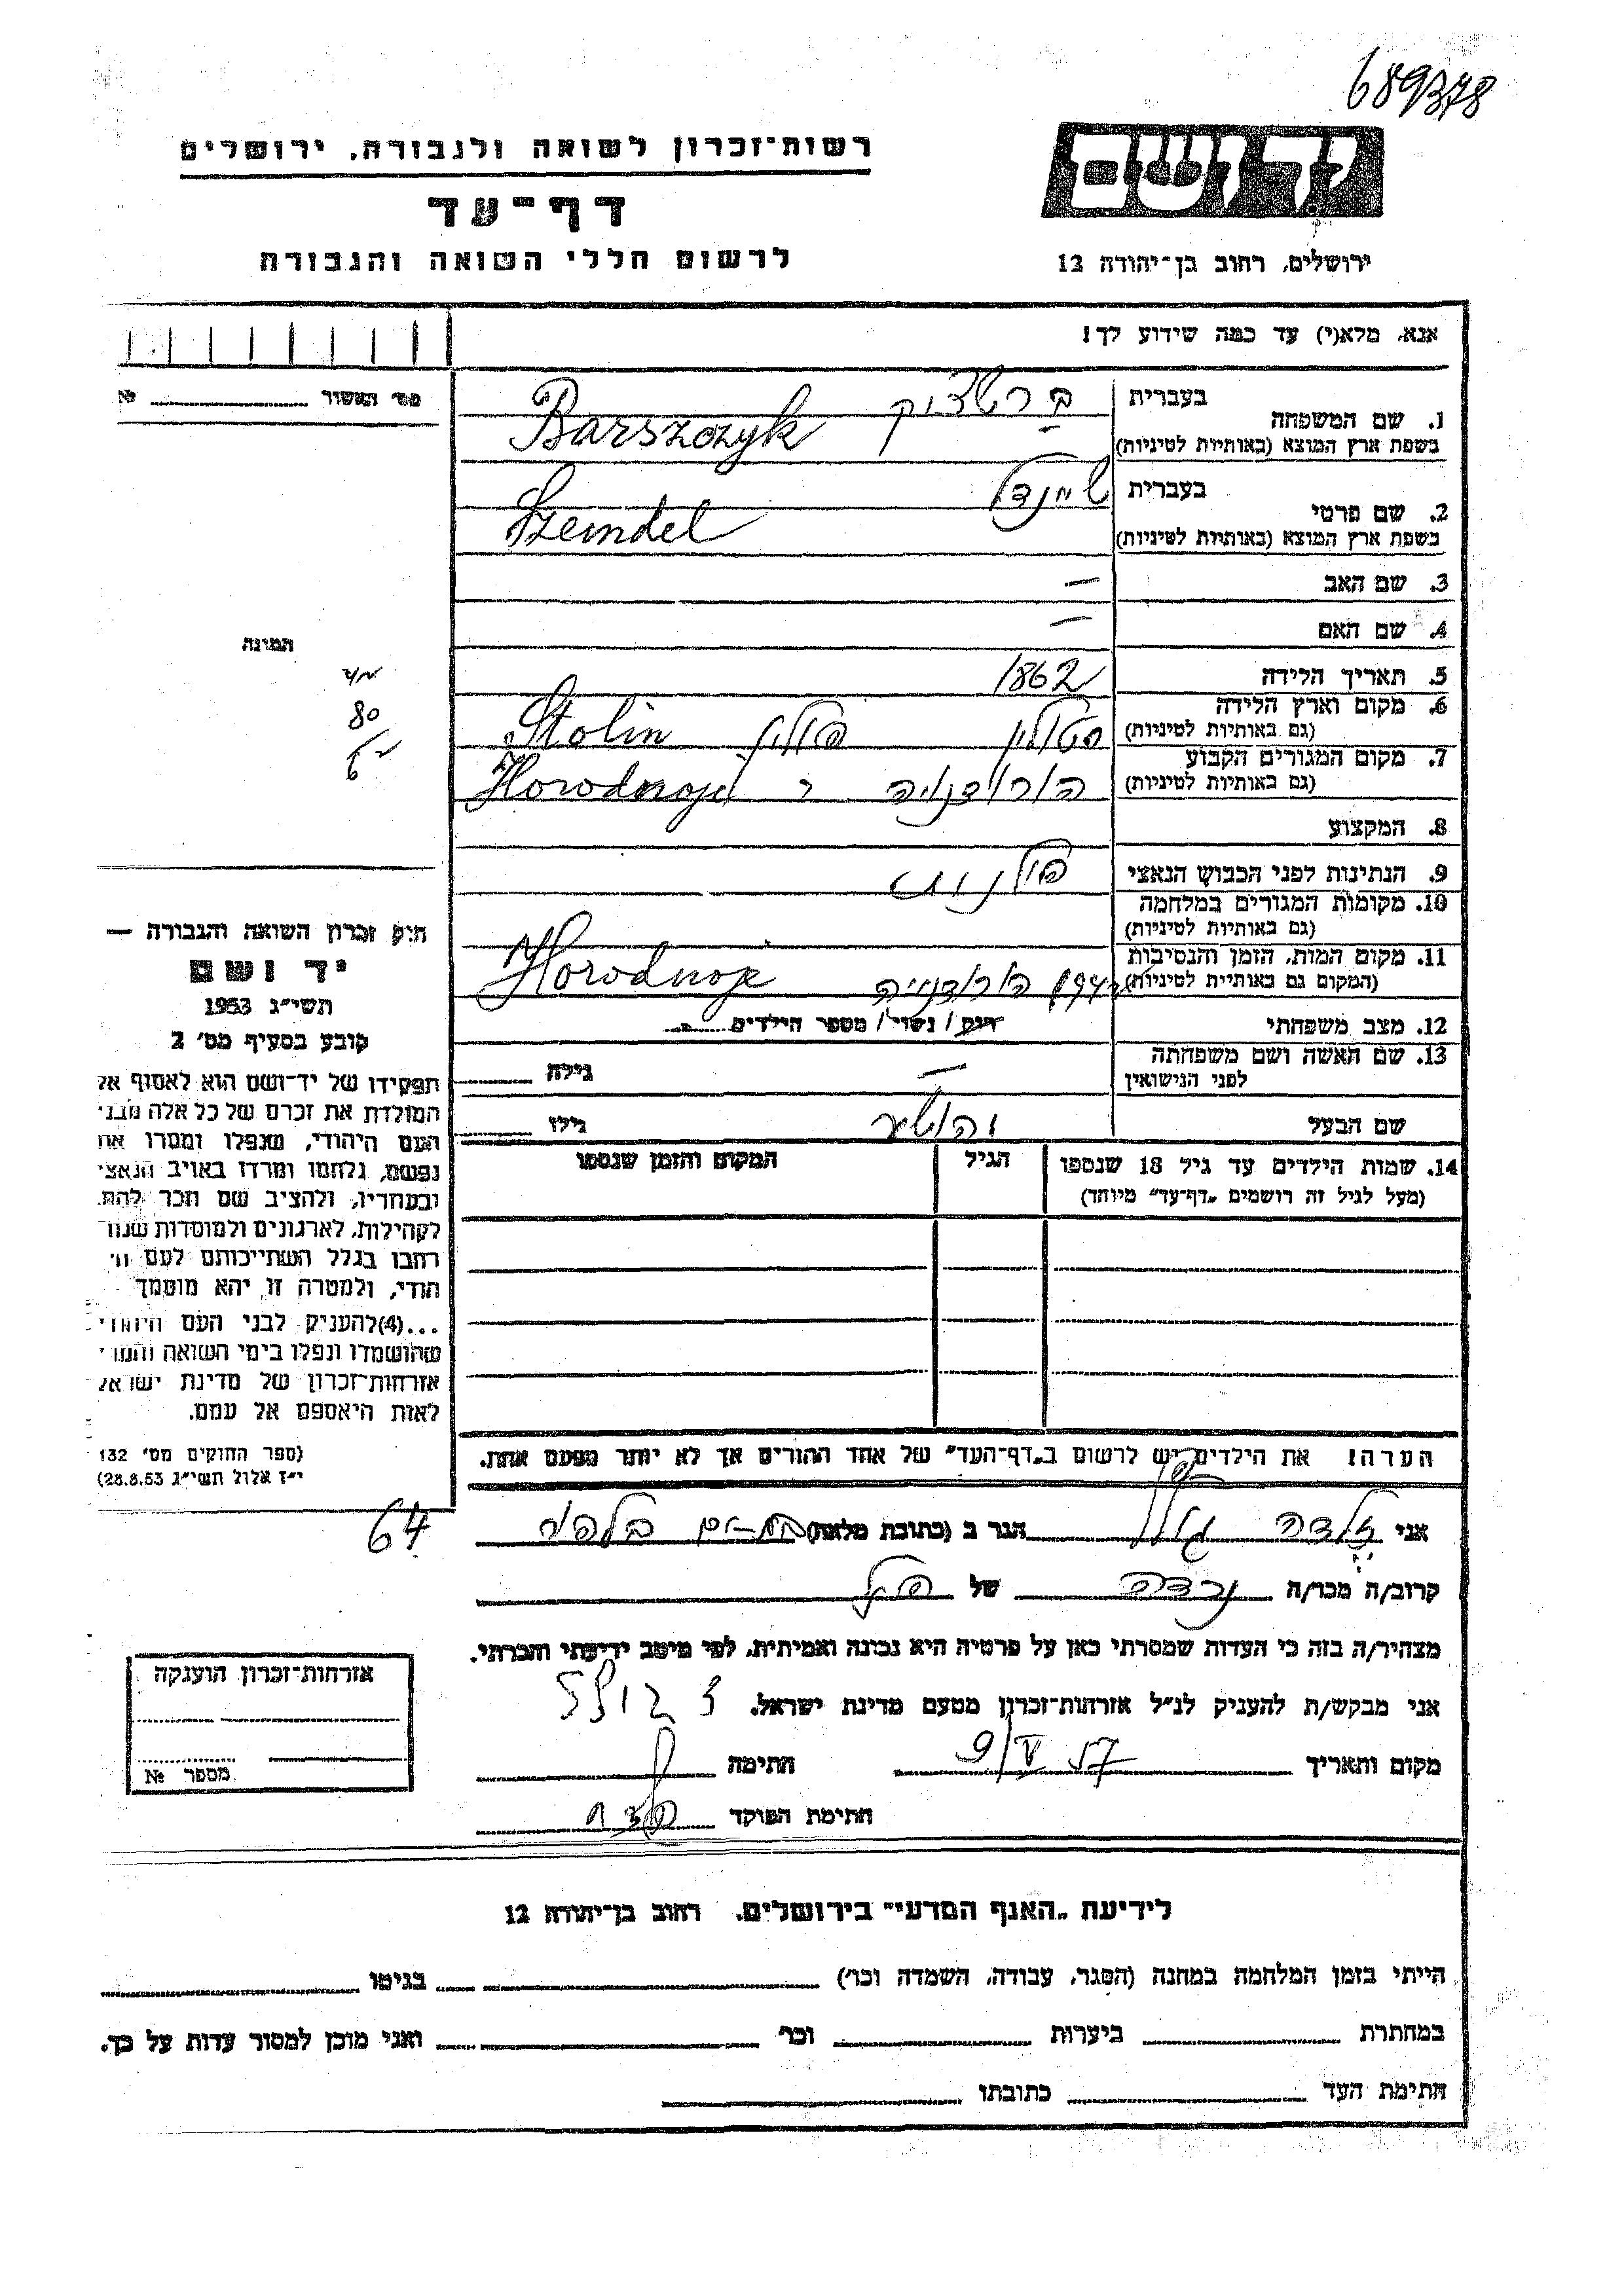 689378
רשות־זכרון לשואה ולגבורה, ירושלים
דף־עד
לרשום חללי השואה והגבורה
יד ושם
ירושלים, רחוב בן־יהודה 12
אנא, מלא(י) עד כמה שידוע לך!
מס׳ האשור №
1. שם המשפחה
בעברית
ברשצ׳יק
בשפת ארץ המוצא (באותיות לטיניות)
Barszczyk
2. שם פרטי
בעברית
שיינדל
בשפת ארץ המוצא (באותיות לטיניות)
Szeindel
3. שם האב —
4. שם האם —
5. תאריך הלידה 1862
6. מקום וארץ הלידה
(גם באותיות לטיניות)
סטולין פולין Stolin
7. מקום המגורים הקבוע
(גם באותיות לטיניות)
הורודנויה Horodnoje
8. המקצוע
9. הנתינות לפני הכבוש הנאצי פולנית
10. מקומות המגורים במלחמה
(גם באותיות לטיניות)
11. מקום המות, הזמן והנסיבות
(המקום גם באותיות לטיניות)
הורודנויה Horodnoje
12. מצב משפחתי רוק / נשוי / מספר הילדים
13. שם האשה ושם משפחתה
לפני הנישואין
— גילה
שם הבעל גילו
14. שמות הילדים עד גיל 18 שנספו
(מעל לגיל זה רושמים „דף־עד״ מיוחד)
הגיל
המקום והזמן שנספו
הערה! את הילדים יש לרשום ב„דף־העד״ של אחד ההורים אך לא יותר מפעם אחת.
התמונה
80
חוק זכרון השואה והגבורה —
יד ושם
תשי״ג 1953
קובע בסעיף מס׳ 2
תפקידו של יד־ושם הוא לאסוף אל
המולדת את זכרם של כל אלה מבני
העם היהודי, שנפלו ומסרו את
נפשם, נלחמו ומרדו באויב הנאצי
ובעוזריו, ולהציב שם וזכר להם,
לקהילות, לארגונים ולמוסדות שנח־
רבו בגלל השתייכותם לעם הי־
הודי, ולמטרה זו יהא מוסמך
...(4)להעניק לבני העם היהודי
שהושמדו ונפלו בימי השואה והמרי
אזרחות־זכרון של מדינת ישראל
לאות היאספם אל עמם.
(ספר החוקים מס׳ 132
י״ז אלול תשי״ג 28.8.53)
64
אני זלדה הגר ב (כתובת מלאה)
קרוב/ה מכר/ה נכדה של
מצהיר/ה בזה כי העדות שמסרתי כאן על פרטיה היא נכונה ואמיתית, לפי מיטב ידיעתי והכרתי.
אני מבקש/ת להעניק לנ״ל אזרחות־זכרון מטעם מדינת ישראל.
מקום ותאריך 9/V 57 חתימה
חתימת הפוקד
אזרחות־זכרון הוענקה
מספר №
לידיעת „האגף המדעי״ בירושלים, רחוב בן־יהודה 12
הייתי בזמן המלחמה במחנה (הסגר, עבודה, השמדה וכו׳) בגיטו
במחתרת ביערות וכו׳ ואני מוכן למסור עדות על כך.
חתימת העד כתובתו